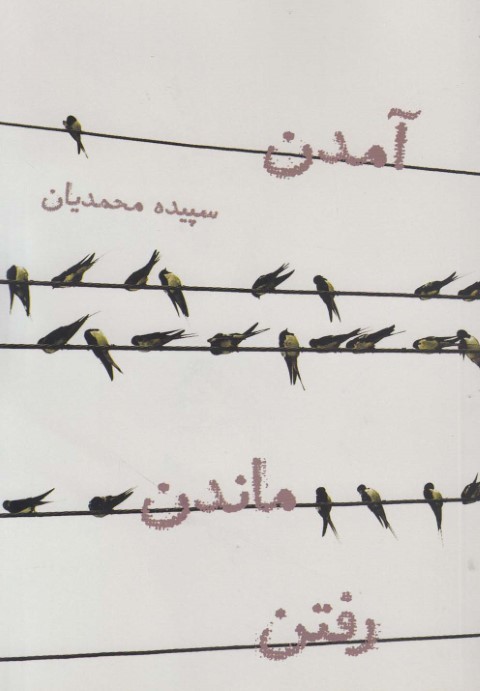 آمدن
سپیده محمدیان
ماندن
رفتن